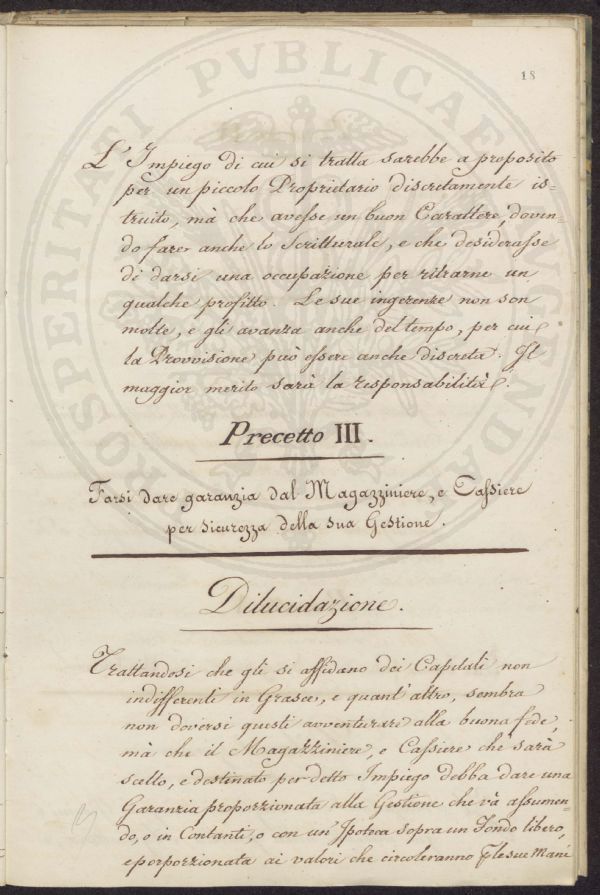 18
L'Impiego di cui si tratta sarebbe a proposito
per un piccolo Proprietario discretamente is=
truito, mà che avesse un buon Carattere, doven=
do fare anche lo Scritturale, e che desiderasse
di darsi una occupazione per ritrarne un
qualche profitto. Le sue ingerenze non son
molte, e gli avanza anche del tempo, per cui
la Provvisione può essere anche discreta. Il
maggior merito sarà la responsabilità.
Precetto III.
Farsi dare garanzia dal Magazziniere, e Cassiere
per sicurezza della sua Gestione.
Dilucidazione.
Trattandosi che gli si affidano dei Capitali non
indifferenti in Grasce, e quant'altro, sembra
non doversi questi avventurare alla buona fede,
mà che il Magazziniere, e Cassiere che sarà
scelto, e destinato per detto Impiego debba dare una
Garanzia proporzionata alla Gestione che và assumen=
do, o in Contanti, o con un'Ipoteca sopra un Fondo libero,
e porporzionata ai valori che circoleranno le sue Mani